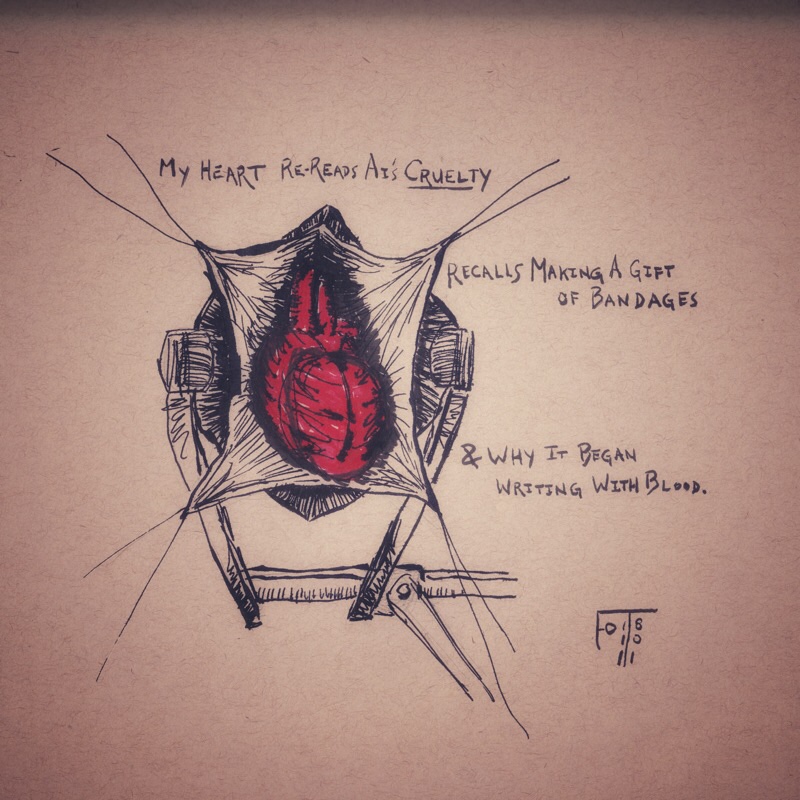 My HEART RE-READS AI'S CRUELTY
RECALLS MAKING A GIFT
OF BANDAGES
& WHY IT BEGAN
WRITING WITH BLOOD.